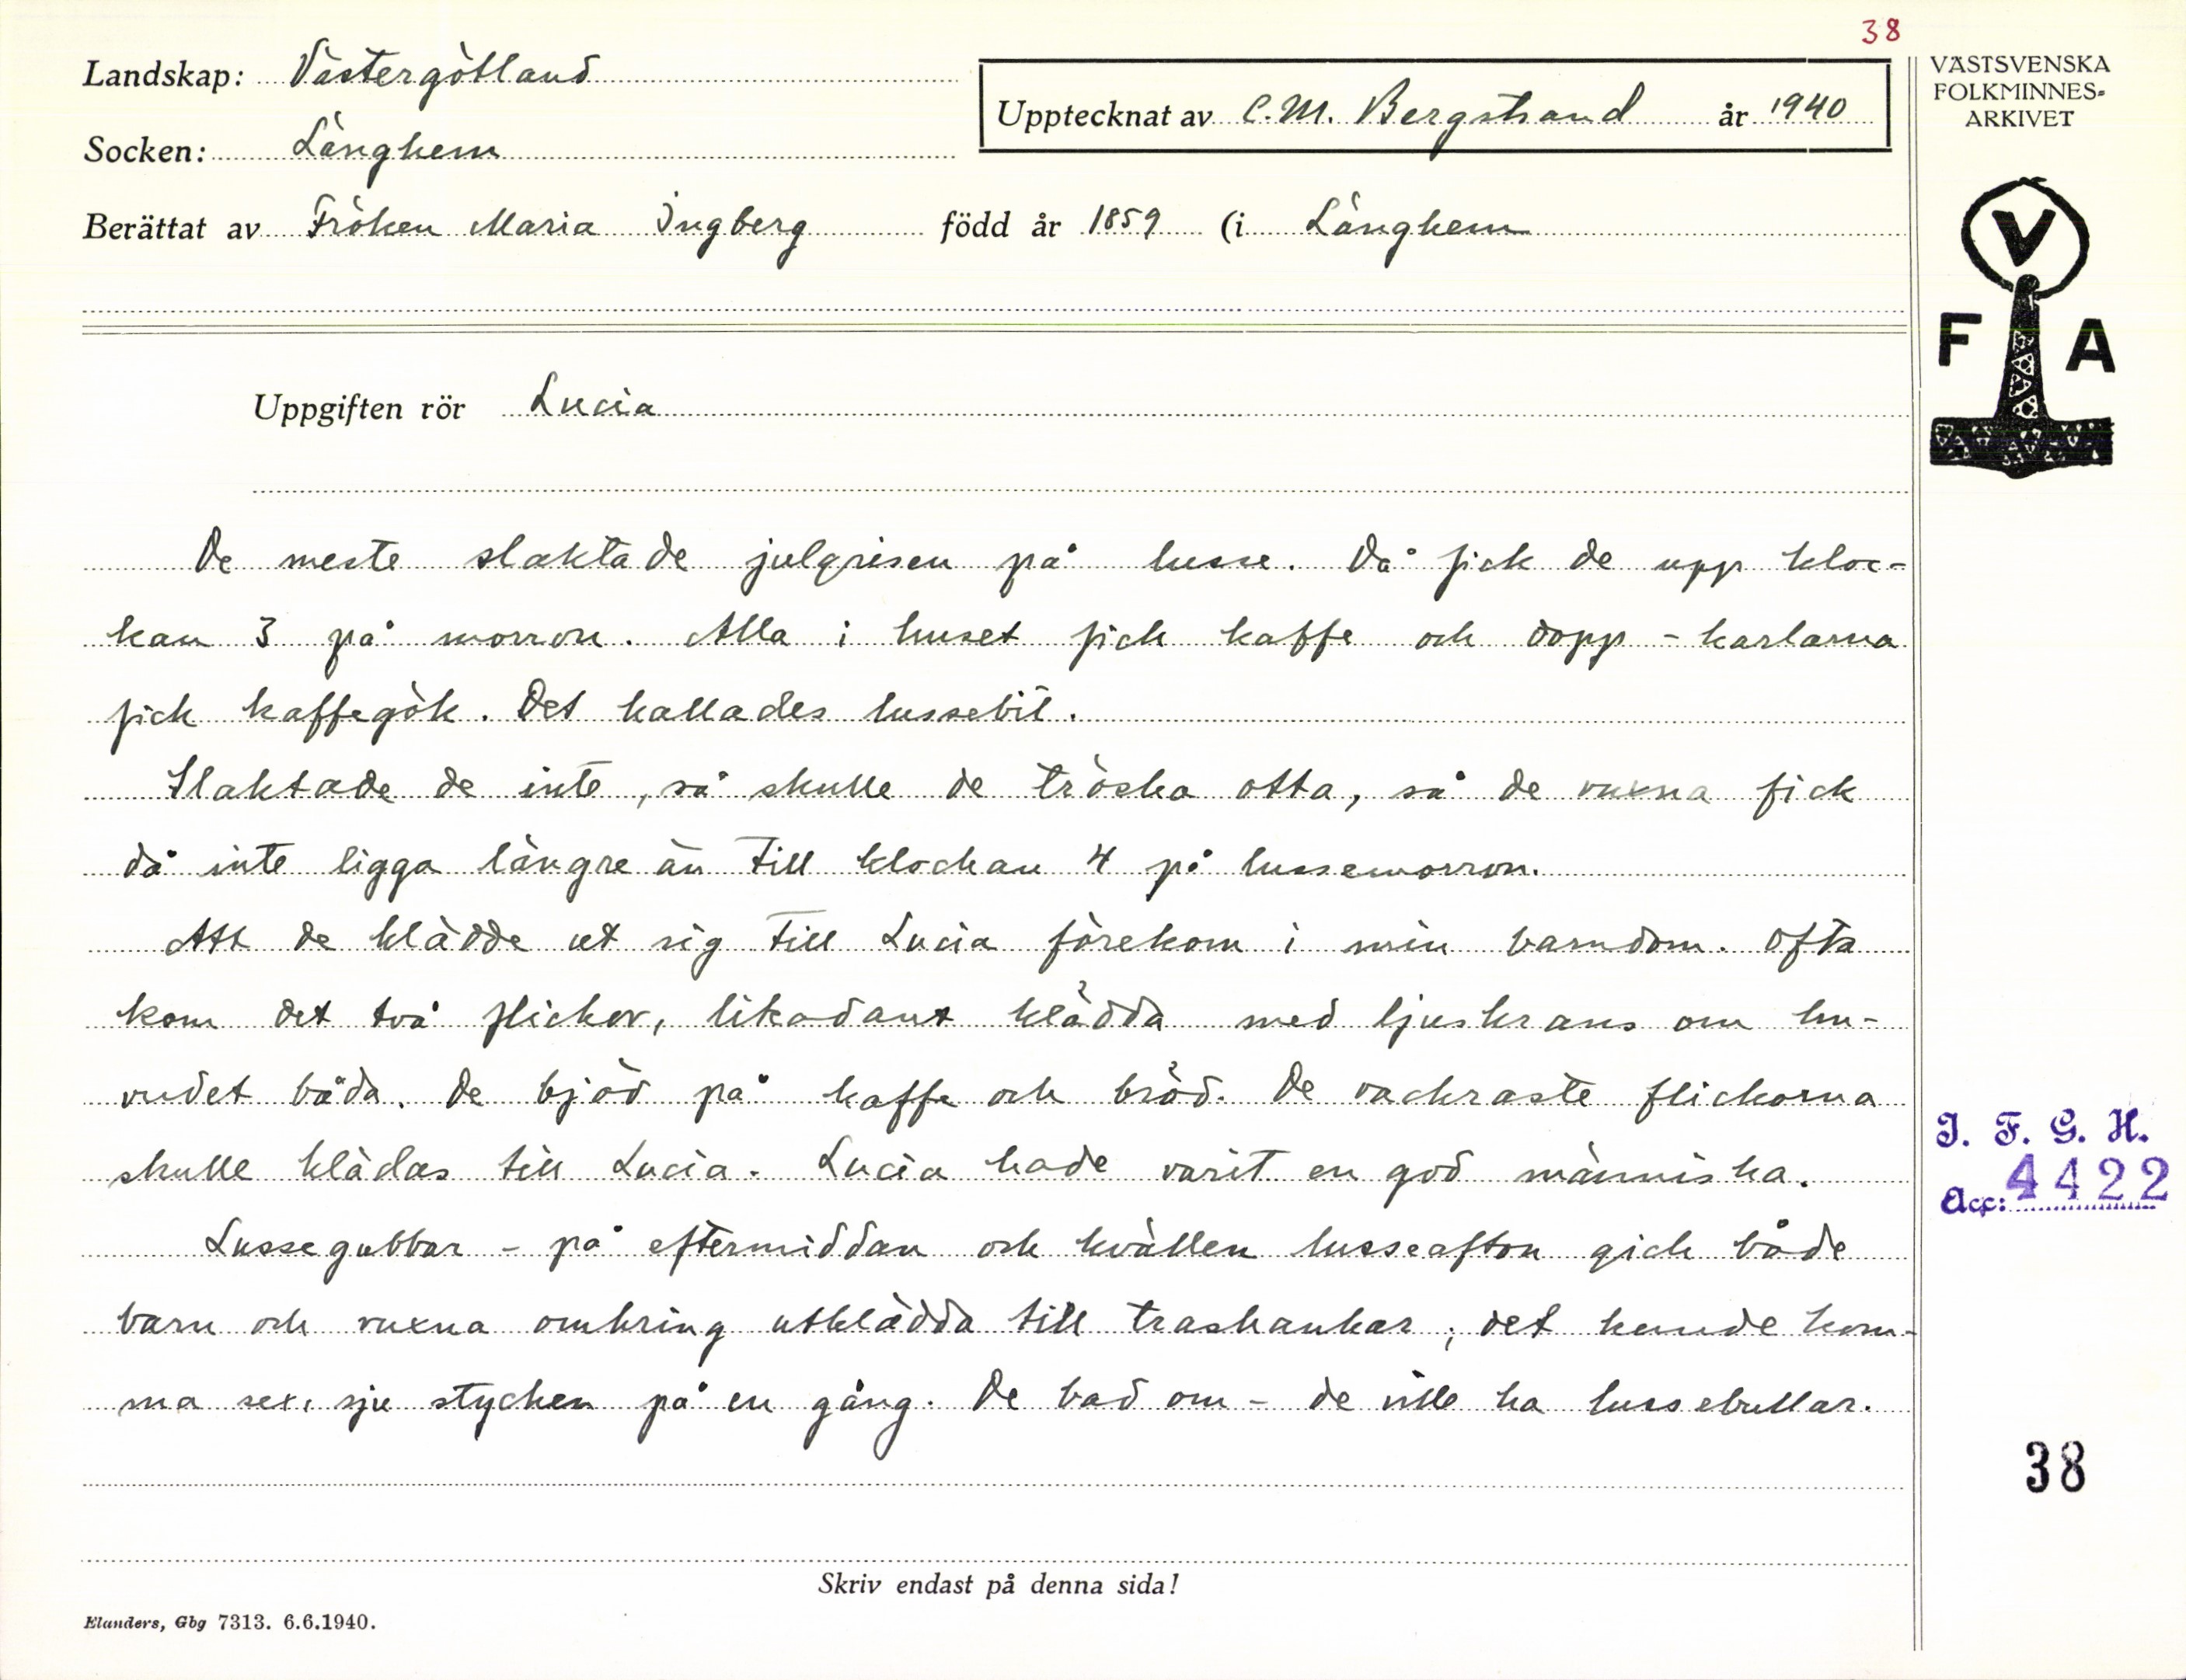 38
Landskap: Västergötland
Upptecknat av C.M. Bergstrand år 1940
Socken: Länghem
Berättat av Fröken Maria Ingberg född år 1859 (i Länghem
VÄSTSVENSKA
FOLKMINNES-
ARKIVET
V
F A
Uppgiften rör Lucia
De meste slaktade julgrisen på lusse. Då fick de upp kloc-
kan 3 på morron. Alla i huset fick kaffe och dopp - karlarna
fick kaffegök. Det kallades lussebit.
Slaktade de inte, så skulle de tröska otta, så de vuxna fick
då inte ligga längre än till klockan 4 på lussemorron.
Att de klädde ut sig till Lucia förekom i min barndom. Ofta
kom det två flickor, likadant klädda med ljuskrans om hu-
vudet båda. De bjöd på kaffe och bröd. De vackraste flickorna
skulle klädas till Lucia. Lucia hade varit en god människa.
Lussegubbar - på eftermiddan och kvällen lusseafton gick både
barn och vuxna omkring utklädda till trashankar; det kunde kom-
ma sex, sju stycken på en gång. De bad om - de ville ha lussebullar.
I. F. G. H.
Acc: 4422
38
Skriv endast på denna sida!
Elanders, Gbg 7313. 6.6.1940.